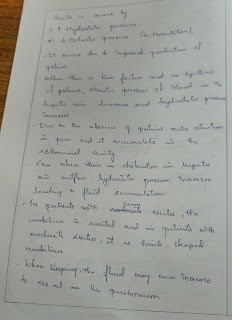 Ascites is caused by
1) ↑ Hydrostatic pressure
2) ↓ Oncotic pressure (
- It occurs due to impaired production of
proteins
- When there is liver failure and no synthesis
of proteins, oncotic pressure of blood in the
hepatic vein decreases and hydrostatic pressure
increases
- Due to the absence of proteins, water retention
is poor and it accumulates in the
abdominal cavity
- Even when there is obstruction in hepatic
outflow, hydrostatic pressure increases
leading to fluid accumulation
- In patients with ascites, the
umbilicus is everted and in patients with
moderate ascites, it is smile-shaped
umbilicus
- When sleeping, the fluid may even increase
to 500 ml in the peritoneum